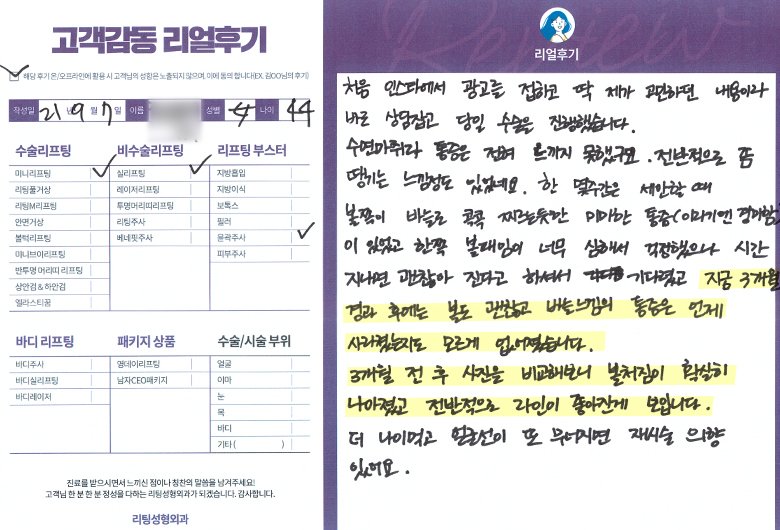 고객감동 리얼후기
해당 후기 온/오프라인에 활용 시 고객님의 성함은 노출되지 않으며, 이에 동의 합니다(EX. 김OO님의 후기)
작성일 21년 9월 7일 이름 성별 女 나이 44
수술리프팅
미니리프팅
리팅풀거상
리팅M리프팅
안면거상
볼턱리프팅
미니브이리프팅
반투명 머리띠 리프팅
상안검 & 하안검
엘라스티꿈
비수술리프팅
실리프팅
레이저리프팅
투명머리띠리프팅
리팅주사
베네핏주사
리프팅 부스터
지방흡입
지방이식
보톡스
필러
윤곽주사
피부주사
바디 리프팅
바디주사
바디실리프팅
바디레이저
패키지 상품
영데이리프팅
남자CEO패키지
수술/시술 부위
얼굴
이마
눈
목
바디
기타 ( )
진료를 받으시면서 느끼신 점이나 칭찬의 말씀을 남겨주세요!
고객님 한 분 한 분 정성을 다하는 리팅성형외과가 되겠습니다. 감사합니다.
리팅성형외과
Review
리얼후기
처음 인스타에서 광고를 접하고 딱 제가 고민하던 내용이라
바로 상담잡고 당일 수술을 진행했습니다.
수면마취라 통증은 전혀 느끼지 못했구요. 전반적으로 쫌
땡기는 느낌정도 있었네요. 한 몇주간은 세안할 때
볼쪽이 바늘로 콕콕 찌르는듯한 미미한 통증(이라기엔 경미함)
이 있었고 한쪽 볼패임이 너무 심해서 걱정했으나 시간
지나면 괜찮아 진다고 하셔서 기다렸고 지금 3개월
경과 후에는 볼도 괜찮고 바늘느낌의 통증은 언제
사라졌는지도 모르게 없어졌습니다.
3개월 전 후 사진을 비교해보니 볼처짐이 확실히
나아졌고 전반적으로 라인이 좋아진게 보입니다.
더 나이먹고 얼굴선이 또 무너지면 재시술 의향
있어요.